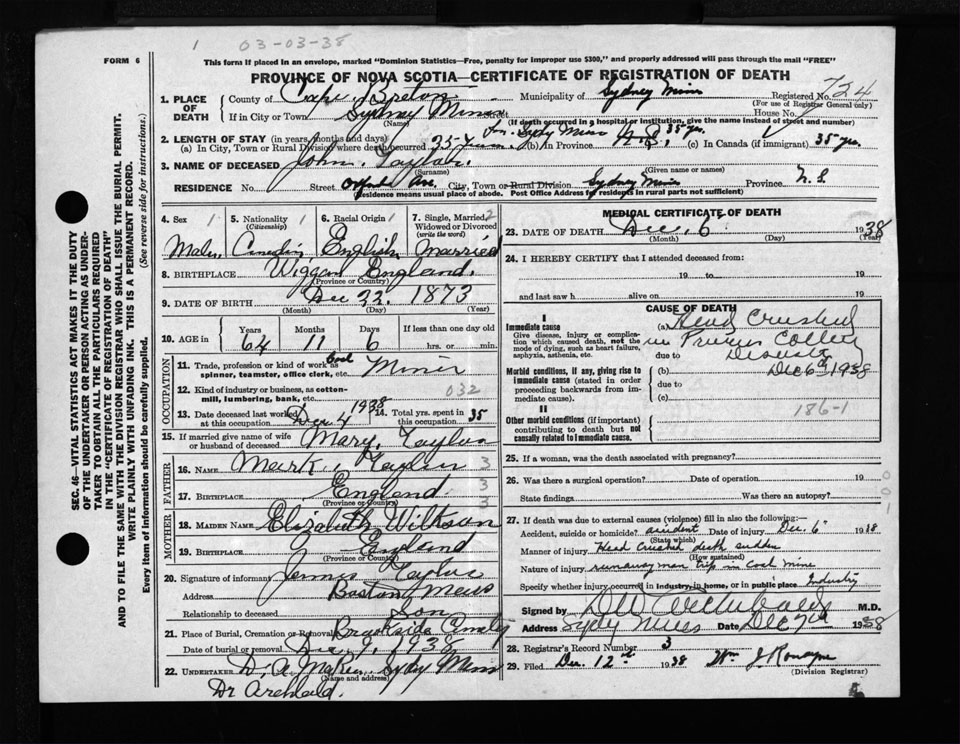 1 03-03-38
FORM 6
This form if placed in an envelope, marked "Dominion Statistics—Free, penalty for improper use $300," and properly addressed will pass through the mail "FREE"
PROVINCE OF NOVA SCOTIA—CERTIFICATE OF REGISTRATION OF DEATH
SEC. 46—VITAL STATISTICS ACT MAKES IT THE DUTY
OF THE UNDERTAKER OR PERSON ACTING AS UNDER-
TAKER TO OBTAIN ALL THE PARTICULARS REQUIRED
IN THE "CERTIFICATE OF REGISTRATION OF DEATH"
AND TO FILE THE SAME WITH THE DIVISION REGISTRAR WHO SHALL ISSUE THE BURIAL PERMIT.
WRITE PLAINLY WITH UNFADING INK. THIS IS A PERMANENT RECORD.
Every item of Information should be carefully supplied. (See reverse side for instructions.)
1. PLACE OF DEATH County of Cape Breton Municipality of Sydney Mines Registered No. 724
(For use of Registrar General only)
If in City or Town Sydney Mines House No.
(Name) (If death occurred in a hospital or institution, give the name instead of street and number)
2. LENGTH OF STAY (in years, months and days)
(a) In City, Town or Rural Division where death occurred 35 years (b) in Province N.S. 35 yrs. (c) In Canada (if immigrant) 35 yrs.
3. NAME OF DECEASED John Taylor
(Surname) (Given name or names)
RESIDENCE No. Street Oxford Ave. City, Town or Rural Division Sydney Mines Province N.S.
(Residence means usual place of abode. Post Office Address for residents in rural parts not sufficient)
4. Sex 1 Male
5. Nationality 1 (Citizenship) Canadian
6. Racial Origin 1 English
7. Single, Married, Widowed or Divorced (write the word) 2 Married
8. BIRTHPLACE Wiggan England
(Province or Country)
9. DATE OF BIRTH Dec 22, 1873
(Month) (Day) (Year)
10. AGE in Years 64 Months 11 Days 6 If less than one day old hrs. or min.
OCCUPATION
11. Trade, profession or kind of work as spinner, teamster, office clerk, etc. Coal Miner
12. Kind of industry or business, as cotton-mill, lumbering, bank, etc. 032
13. Date deceased last worked at this occupation Dec. 4 1938 14. Total yrs. spent in this occupation 35
15. If married give name of wife or husband of deceased Mary Taylor
FATHER
16. NAME Mark Taylor 3
17. BIRTHPLACE England 3
(Province or Country)
MOTHER
18. MAIDEN NAME Elizabeth Wiltson 3
19. BIRTHPLACE England
(Province or Country)
20. Signature of informant James Taylor
Address Boston Mass
Relationship to deceased Son
21. Place of Burial, Cremation or Removal Brookside Cemetery
Date of burial or removal Dec. 9, 1938
22. UNDERTAKER D. A. Sydney Mines
(Name and address)
Dr Archibald.
MEDICAL CERTIFICATE OF DEATH
23. DATE OF DEATH Dec. 6 1938
(Month) (Day) (Year)
24. I HEREBY CERTIFY that I attended deceased from:
19 to 19
and last saw h alive on 19
CAUSE OF DEATH
I
Immediate cause (a) Head Crushed
Give disease, injury or complication which caused death, not the mode of dying, such as heart failure, asphyxia, asthenia, etc.
in Princess Colliery
due to Disaster
Dec 6th 1938
Morbid conditions, if any, giving rise to immediate cause (stated in order proceeding backwards from immediate cause). (b)
due to
(c)
II
Other morbid conditions (if important) contributing to death but not causally related to immediate cause. 186-1
25. If a woman, was the death associated with pregnancy?
26. Was there a surgical operation? Date of operation 19
State findings Was there an autopsy?
001
27. If death was due to external causes (violence) fill in also the following:—
Accident, suicide or homicide? accident Date of injury Dec. 6 1938
(State which)
Manner of injury Head crushed death sudden
(How sustained)
Nature of injury runaway man trip in coal mine
Specify whether injury occurred in industry, in home, or in public place Industry
Signed by D W Archibald M.D.
Address Sydney Mines Date Dec 7th 1938
28. Registrar's Record Number 3
29. Filed Dec. 12th 1938 Wm J
(Division Registrar)